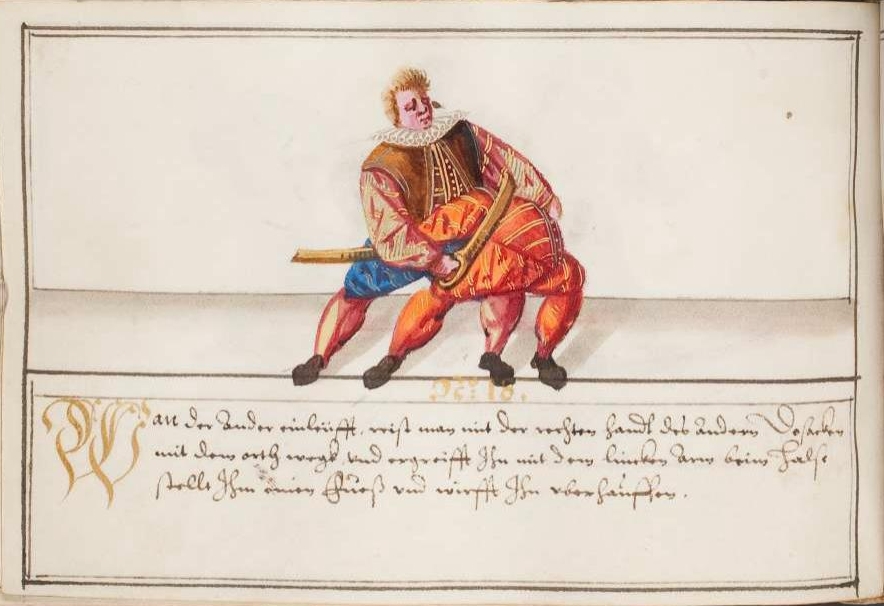 N: 18.
Wan der Ander einleufft, reist man mit der rechten handt des andern Desacken
mit dem orth wegk vnd ergreifft Ihn mit dem lincken Arm beim halse
stellt Ihm einen Fuess vnd wirfft Ihn vberhauffen.